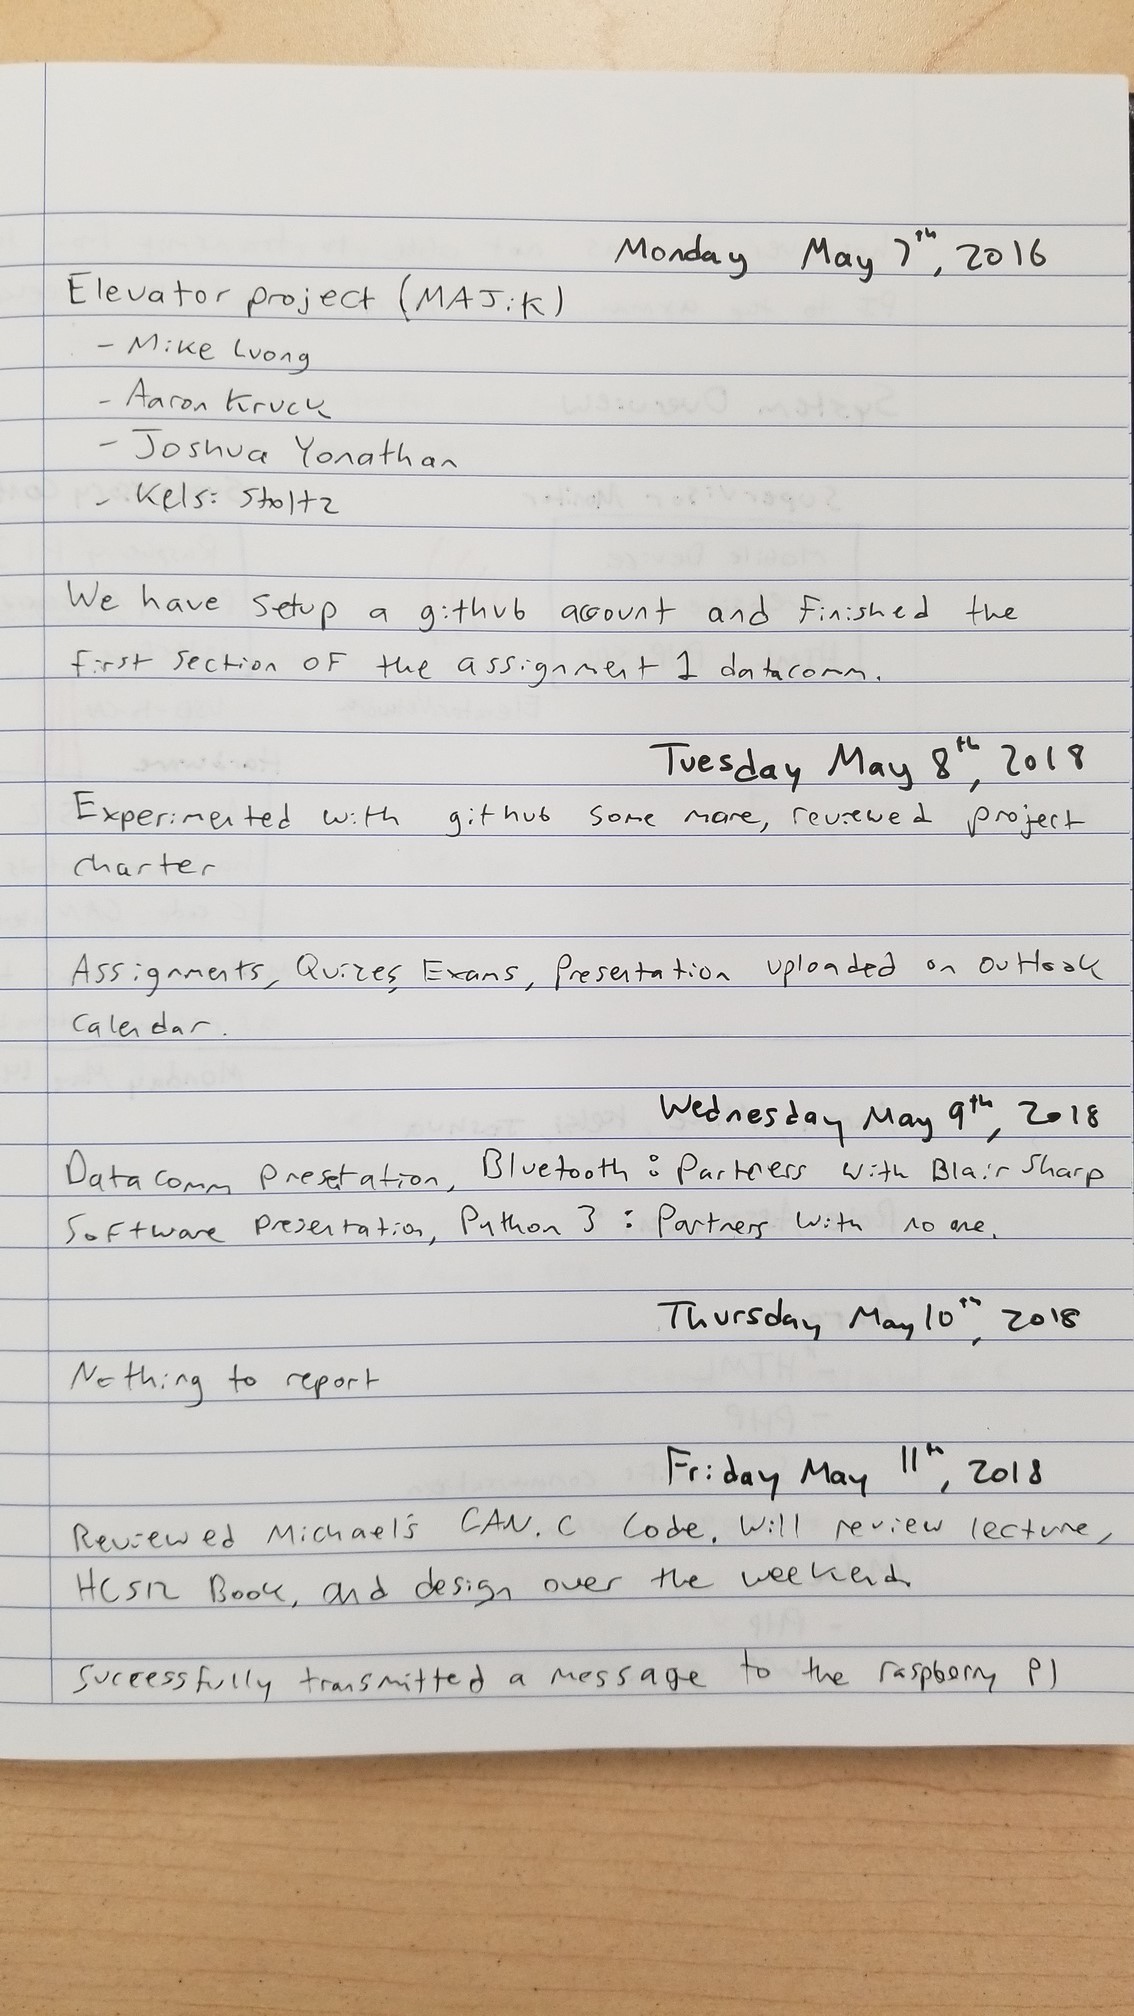 Monday May 7th, 2016
Elevator project (MAJiK)
- Mike Luong
- Aaron Kruck
- Joshua Yonathan
- Kelsi Stoltz
We have setup a github account and finished the
first section of the assignment 1 datacomm.
Tuesday May 8th, 2018
Experimented with github some more, reviewed project
charter
Assignments, Quizes, Exams, Presentation uploaded on outlook
Calendar.
Wednesday May 9th, 2018
Datacomm presetation, Bluetooth : Partners with Blair Sharp
Software presentation, Python 3 : Partners with no one.
Thursday May 10th, 2018
Nothing to report
Friday May 11th, 2018
Reviewed Michael's CAN.C Code. Will review lecture,
HCS12 Book, and design over the weekend.
Successfully transmitted a message to the raspberry PI